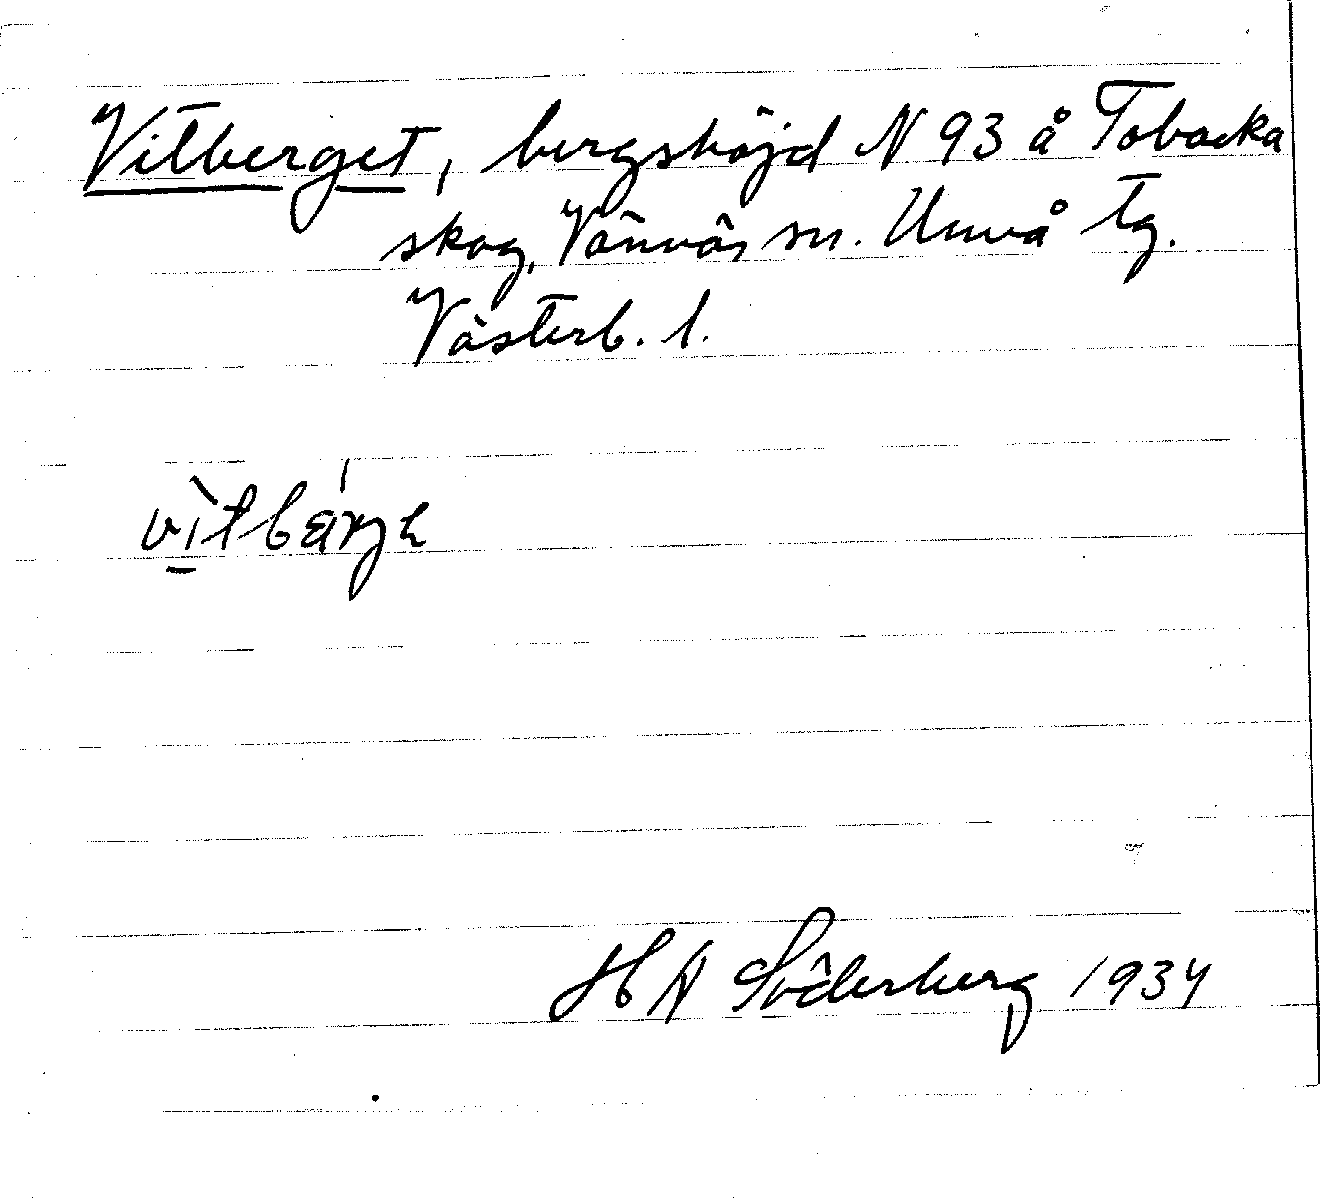 Vitberget, bergshöjd N 93 å Tobacka
skog, Vännäs sn. Umeå tg.
Västerb. l.
vìtbärje
H N Söderberg 1934